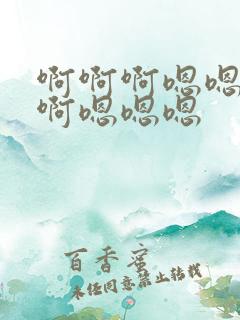 啊啊啊嗯嗯
啊嗯嗯嗯
百香蜜
未经同意禁止转载